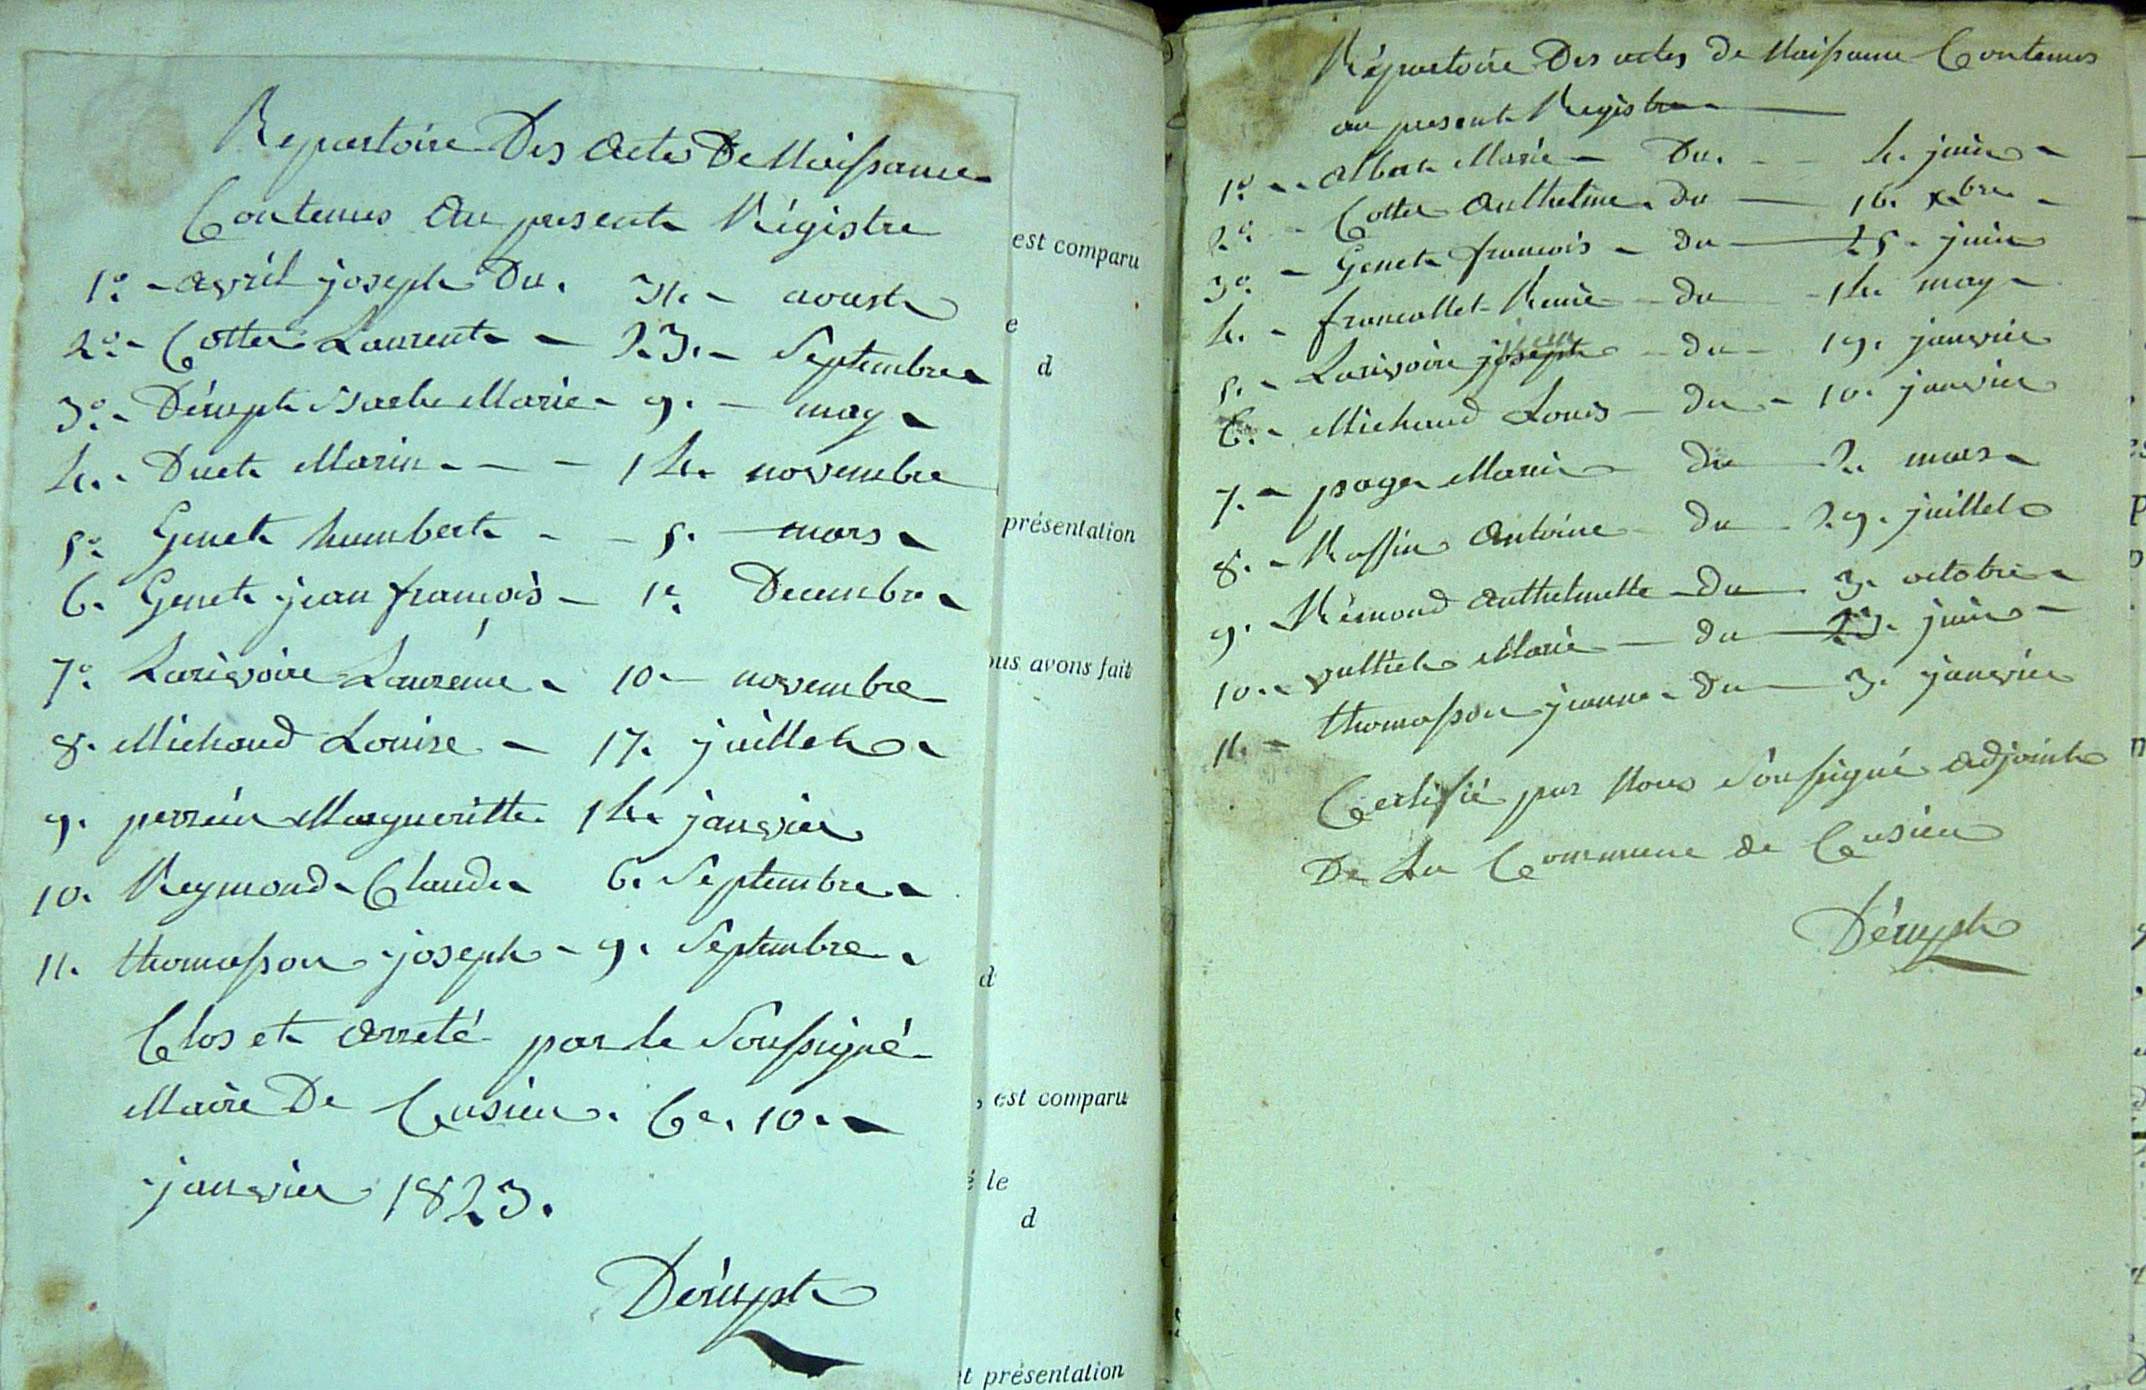 Repertoire Des actes De Naissance
Contenus au present Régistre
1º. - avril joseph Du. 31. - aoust
2º. - Cottet Laurent - 23. - Septembre
3º. - Dérupt isabe Marie - 9. - may
4. - Duet Marin - - - 14. novembre
5º Genet humbert - - 5. mars
6. Genet jean françois - 1er Decembre
7º. Larivoire Laurence - 10 - novembre
8. Michaud Louise - 17. juillet
9. perrin Margueritte 14. janvier
10. Reymond Claude 6. Septembre
11. thomasson joseph - 9. Septembre
Clos et arreté par le Soussigné
Maire De Cusieu. Ce. 10.
janvier 1823.
Dérupt
est comparu
e
d
présentation
ous avons fait
d
, est comparu
é le
d
et présentation
Répertoire Des actes de Naissance Contenus
au present Registre
1º. - - albert Marie - Du. - - 4. juin -
2º. - Cottet Anthelme. du - 16. xbre -
3º. - Genet françois - du - 25. juin
4. - francollet Renie - du - 14. may -
5. - Larivoire joseph jean - du - 19. janvier
6. - Michaud Louis - du - 10. janvier
7. - page Marie - du 2. mars
8. - Ruffin Antoine - du - 29. juillet
9. - Rémond Anthelmette - du - 3. octobre
10. - vulliet Marie - du - 23. juin -
11. - thomasson jeanne - du - 3. janvier
Certifié par Nous Soussigné adjoint
De La Commune de Cusieu
Dérupt